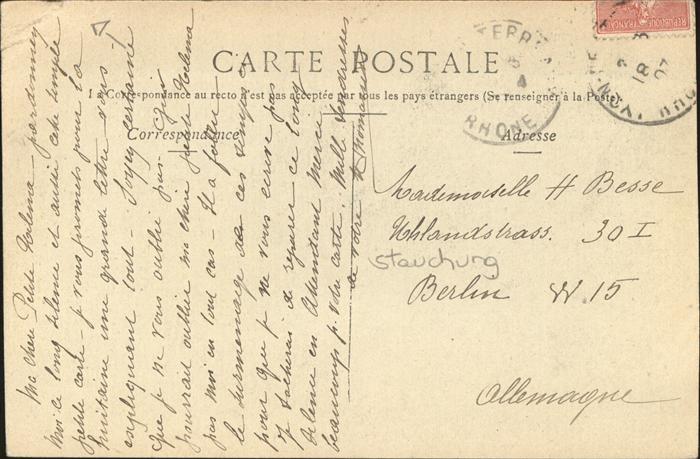 CARTE POSTALE
La Correspondance au recto n'est pas acceptée par tous les pays étrangers (Se renseigner à la Poste)
Correspondance
Adresse
Ma chère Petite Helena - pardonnez
moi ce long silence et aussi cette simple
petite carte - je vous promets pour la
huitaine une grande lettre vous
expliquant tout - Soyez certaine
que je ne vous oublie pas - Qui
pourrait oublier ma chère petite Helena
pas moi en tout cas - Il a fallu
le surmenage de ces temps
pour que je ne vous écrive pas
je tacherai de réparer ce long
silence en attendant Merci
beaucoup p. votre carte. Mille tendresses
de votre
Mademoiselle H Besse
Uhlandstrass. 30 I
Stauchung
Berlin W 15
Allemagne
RHONE